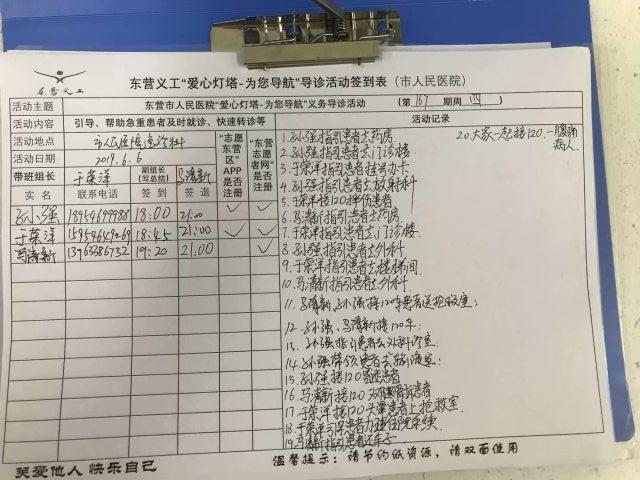 东营义工
东营义工“爱心灯塔-为您导航”导诊活动签到表（市人民医院）
活动主题 东营市人民医院“爱心灯塔-为您导航”义务导诊活动 （第167期周四）
活动内容 引导、帮助急重患者及时就诊、快速转诊等 活动记录
活动地点 市人民医院急诊科
活动日期 2019.6.6
带班组长 于荣洋 副组长（写总结） 马清新
“志愿东营区”APP是否注册
“东营志愿者网”是否注册
实名 联系电话 签到 签退
孙强 18954699988 18:00 21:00 ✓ ✓
于荣洋 18:45 21:00 ✓ ✓
马清新 13963286732 19:20 21.00 ✓
1.孙强指引患者去药房
2.孙强指引患者去门诊楼
3.于荣洋指引患者挂号办卡
4.孙强指引患者去放射科
5.于荣洋接120摔伤患者
6.马清新指引患者去药房
7.于荣洋指引患者去门诊楼
8.孙强指引患者去外科
9.于荣洋指引患者去楼梯间
10.马清新指引患者去外科
11.马清新、孙强接120车患者送抢救室；
12.孙强、马清新接120车.
13.孙强指引患者去外科诊室
14.孙强带领患者去输液室;
15.孙强接120患者
16.马清新接120双腿患者
17.于荣洋接120头晕患者上抢救室
18.于荣洋引导患者办理住院手续
19.马清新指引患者还车子
20.大家一起接120.一腹痛
病人.
关爱他人 快乐自己
温馨提示：请节约纸资源，请双面使用